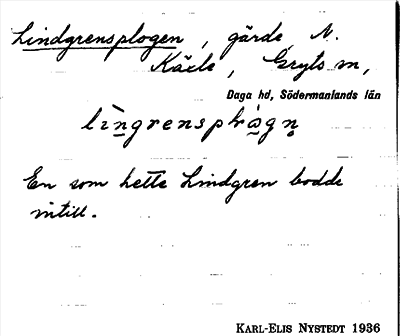 Lindgrensplogen, gärde N.
Käxle, Gryts sn,
Daga hd, Södermanlands län
En som hette Lindgren bodde
intill.
KARL-ELIS NYSTEDT 1936